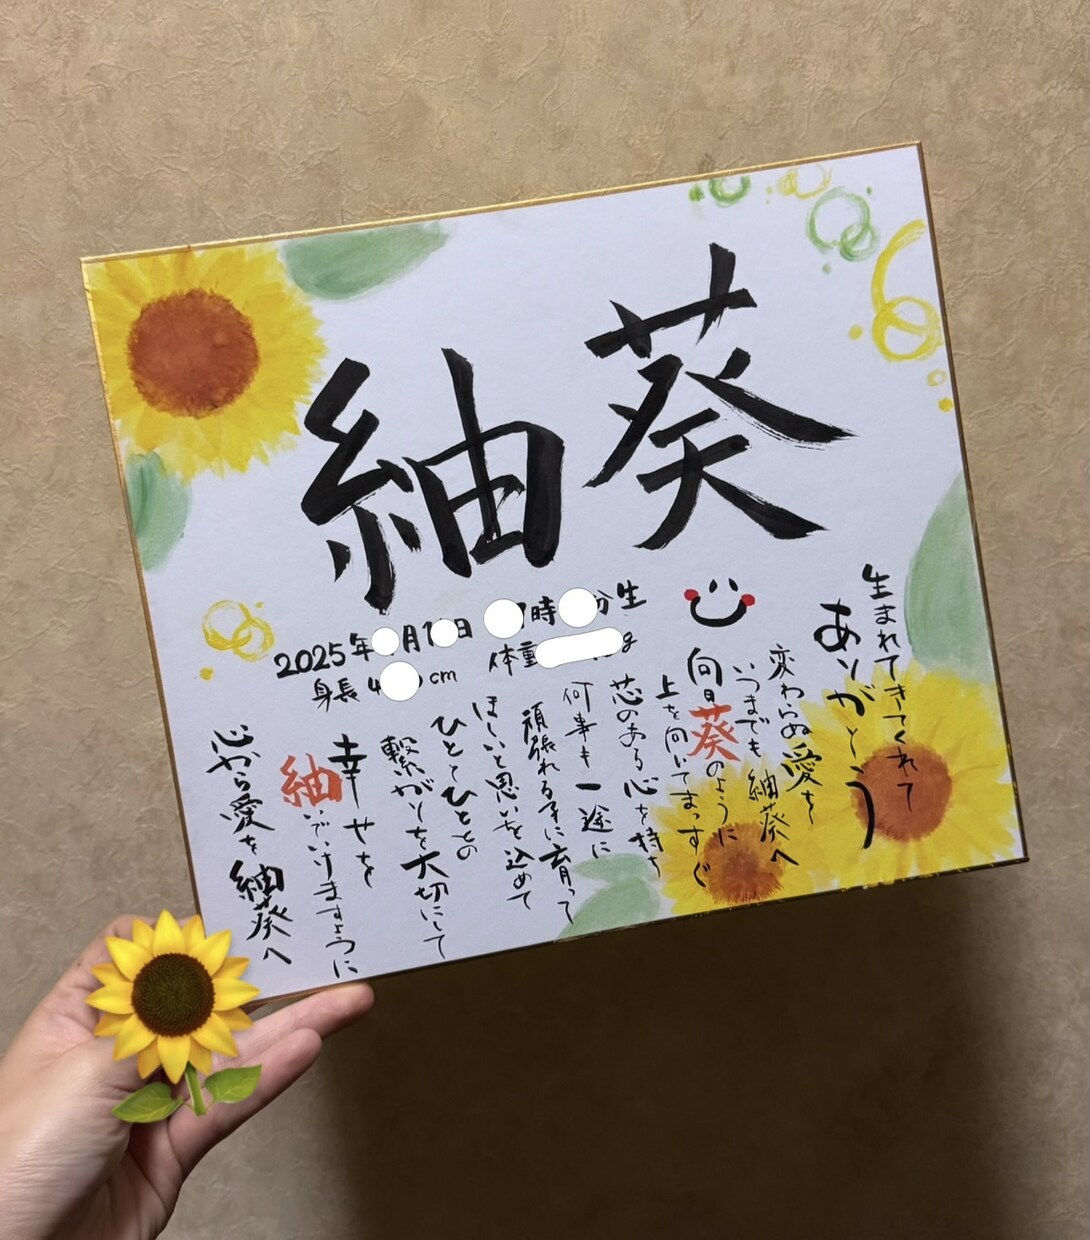 紬葵
2025年 月1 日 時 分生
身長 4 cm 体重 g
生まれてきてくれて
ありがとう
変わらぬ愛を
いつまでも紬葵へ
向日葵のように
上を向いてまっすぐ
芯のある心を持ち
何事も一途に
頑張れる子に育って
ほしいと思いを込めて
ひとてひととの
繋がりを大切にして
幸せを
紬いでいけますように
心から愛を紬葵へ